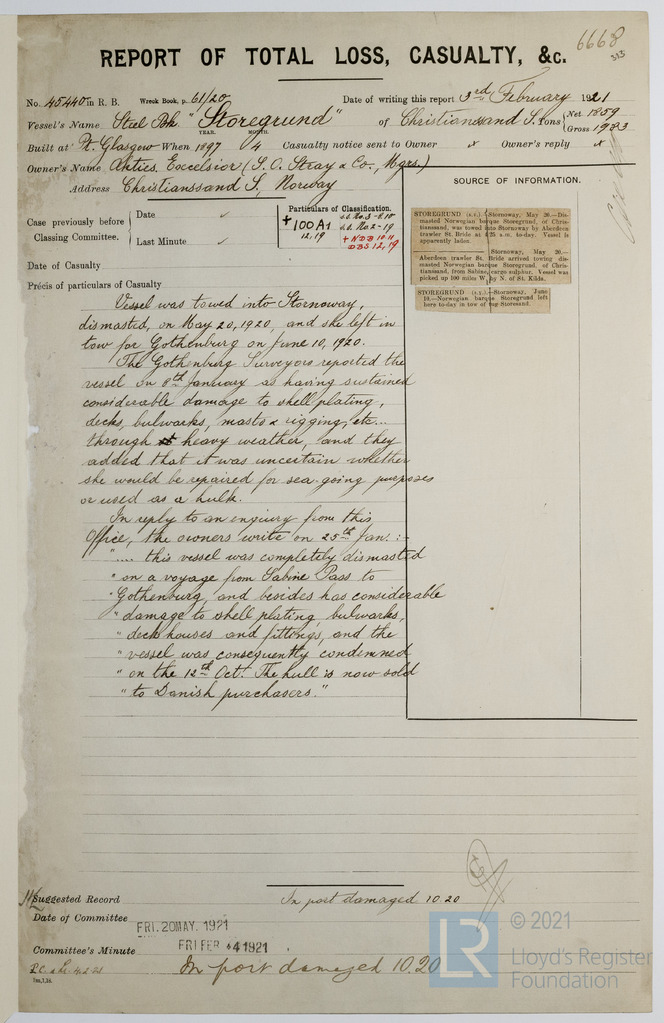 6668
REPORT OF TOTAL LOSS, CASUALTY, &c.
No. 45440 in R. B. Wreck Book, p. 61/20 Date of writing this report 3rd February 1921
Vessel's Name Steel Bk "Storegrund" of Christianssand S. Tons { Net 1859 Gross 1983
YEAR. MONTH.
Built at Pt. Glasgow When 1897 4 Casualty notice sent to Owner x Owner's reply x
Owner's Name Aktics. Excelsior (S. O. Stray & Co., Mgrs.)
Address Christianssand S, Norway
Case previously before Classing Committee. { Date ✓
Last Minute ✓
Particulars of Classification.
+100A1
12,19
s.s. No. 3 - 8.10
s.s. No. 2 - 19
+ NDB 10.11
DBS 12,19
SOURCE OF INFORMATION.
STOREGRUND (s.v.).—Stornoway, May 20.—Dis-
masted Norwegian barque Storegrund, of Christi-
anssand, was towed into Stornoway by Aberdeen
trawler St. Bride at 4.25 a.m. to-day. Vessel is
apparently laden.
—— Stornoway, May 20.—
Aberdeen trawler St. Bride arrived towing dis-
masted Norwegian barque Storegrund, of Chris-
tianssand, from Sabine, cargo sulphur. Vessel was
picked up 100 miles W. by N. of St. Kilda.
STOREGRUND (s.v.).—Stornoway, June
10.—Norwegian barque Storegrund left
here to-day in tow of tug Storesand.
Date of Casualty
Précis of particulars of Casualty
Vessel was towed into Stornoway,
dismasted, on May 20, 1920, and she left in
tow for Gothenburg on June 10, 1920.
The Gothenburg Surveyors reported the
vessel on 8th January as having sustained
considerable damage to shell plating,
decks, bulwarks, masts & rigging, etc...
through heavy weather, and they
added that it was uncertain whether
she would be repaired for sea-going purposes
or used as a hulk.
In reply to an enquiry from this
Office, the owners write on 25th Jan. :-
".... this vessel was completely dismasted
" on a voyage from Sabine Pass to
" Gothenburg, and besides has considerable
" damage to shell plating, bulwarks,
" deck houses and fittings, and the
" vessel was consequently condemned
" on the 12th Oct. The hull is now sold
" to Danish purchasers."
Suggested Record In port damaged 10.20
Date of Committee FRI. 20 MAY. 1921
FRI FEB 4 1921
Committee's Minute In port damaged 10.20
LR
© 2021
Lloyd's Register
Foundation